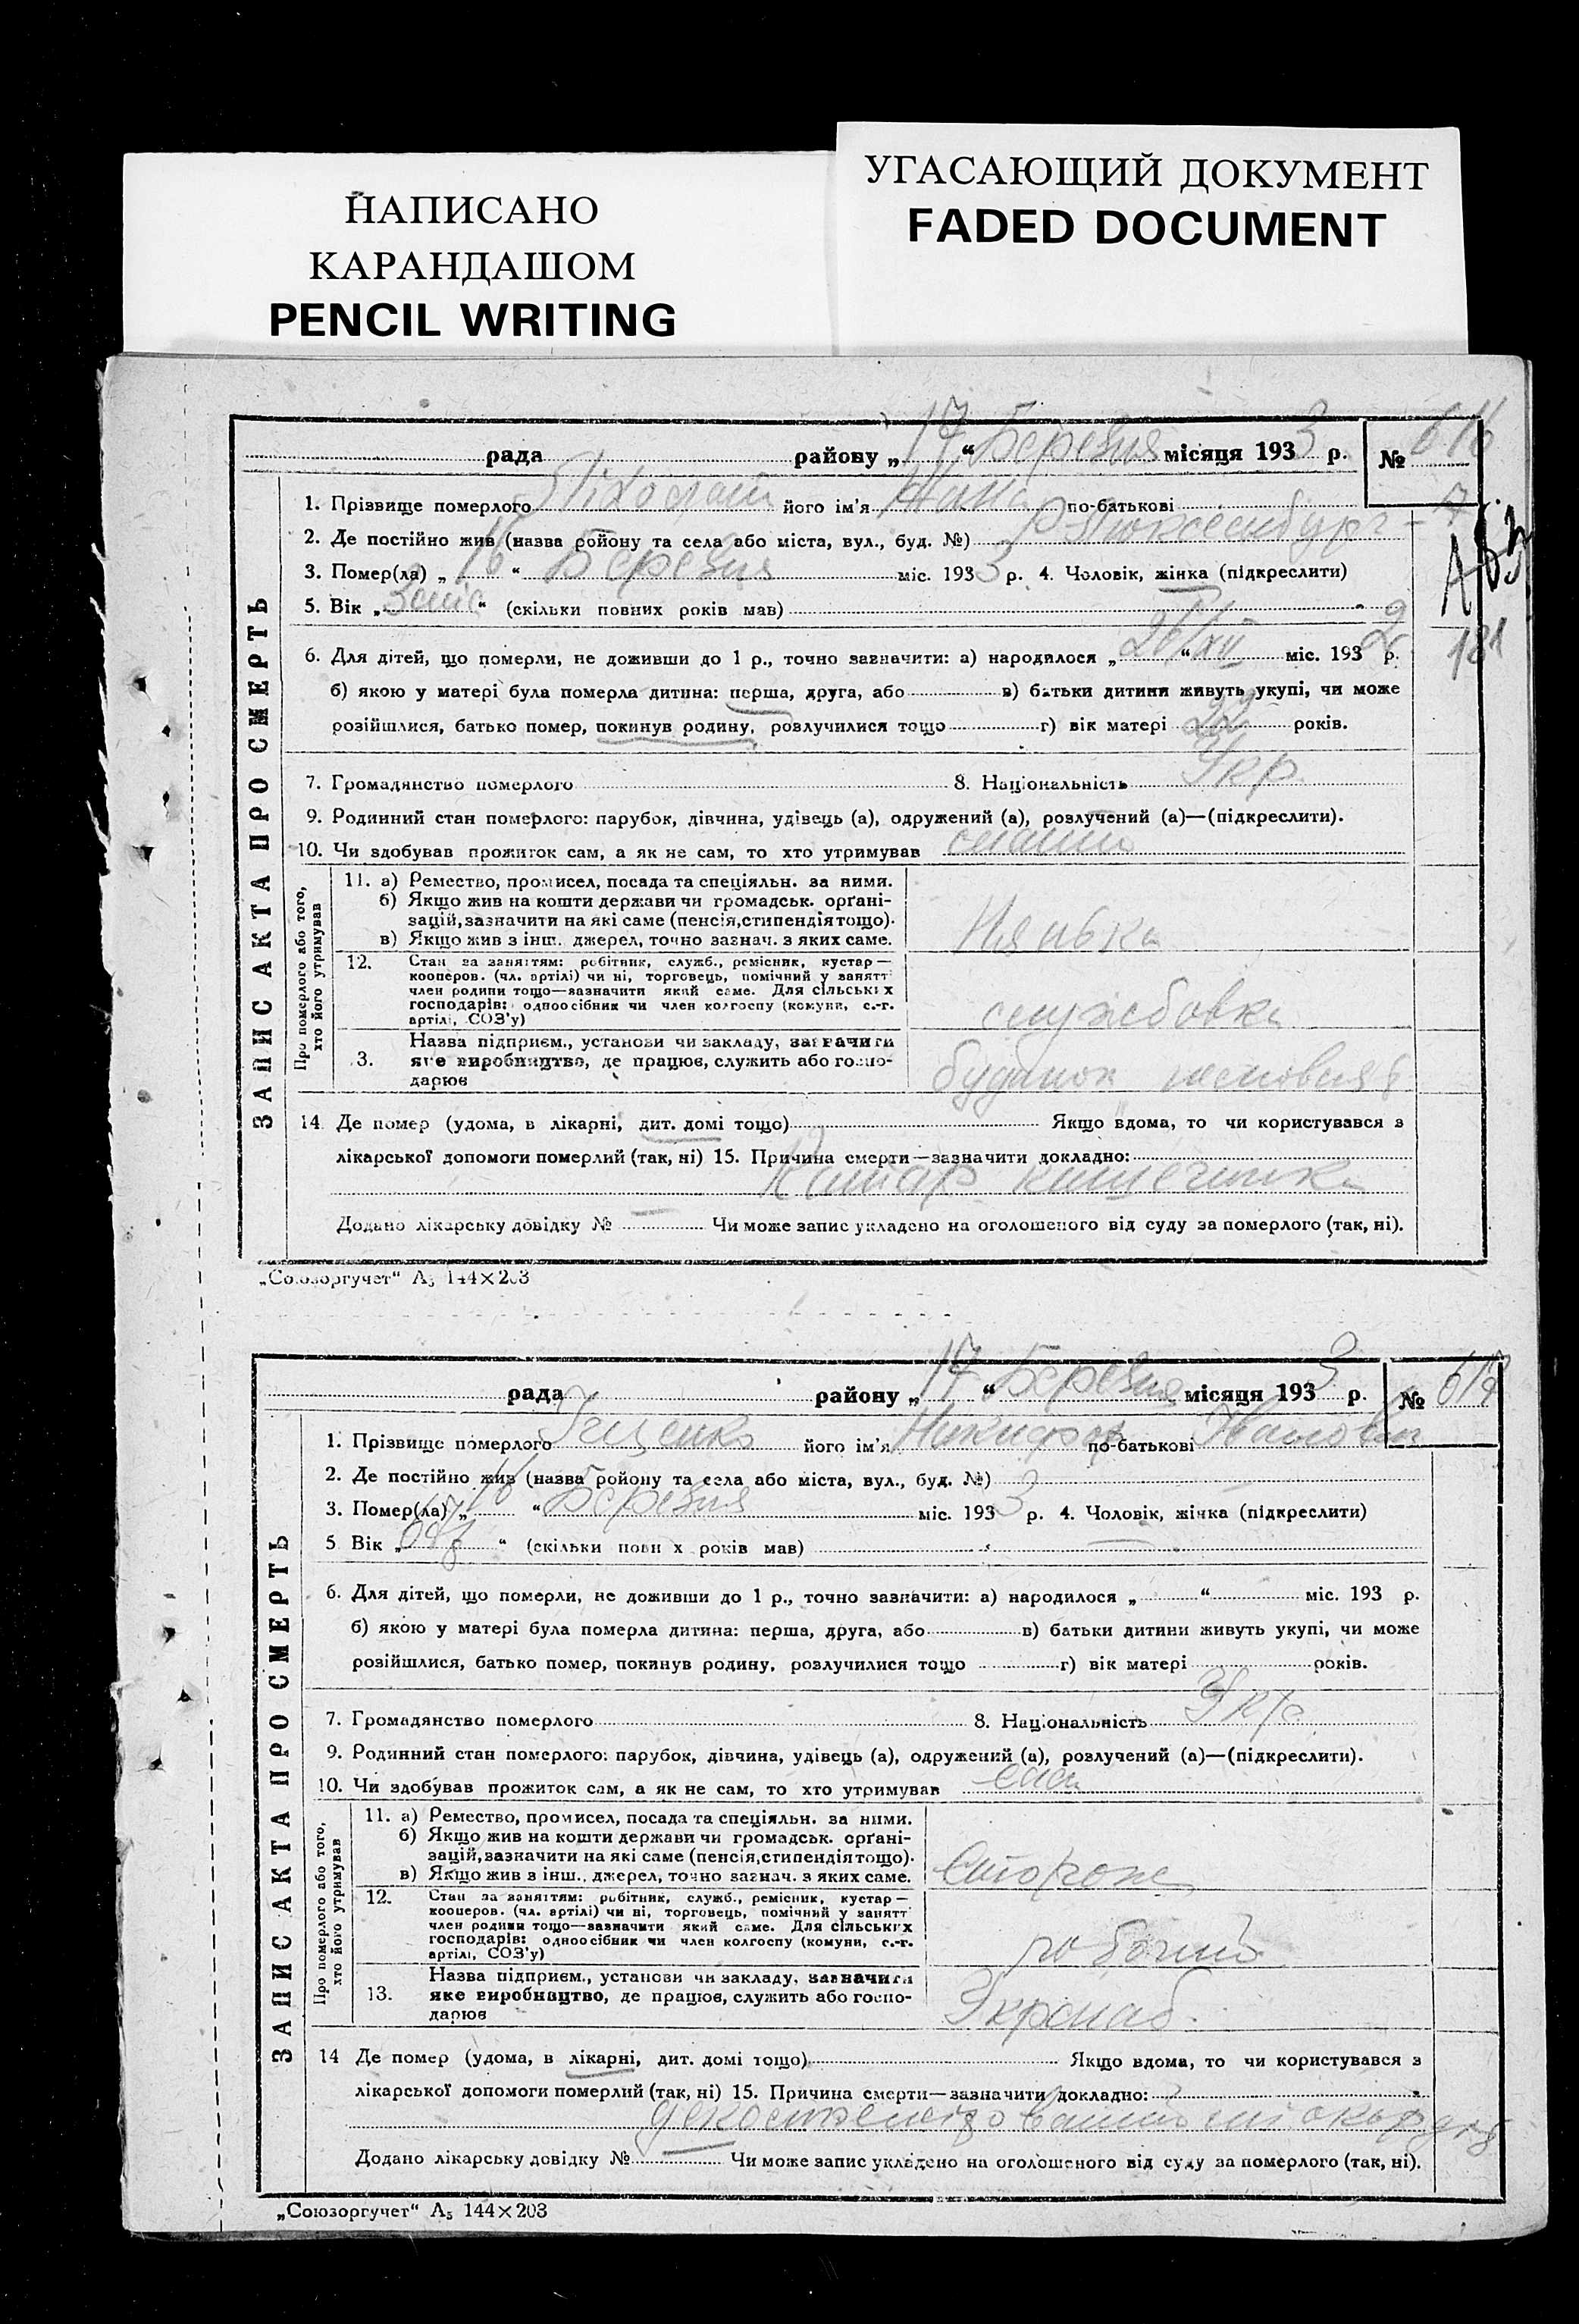 НАПИСАНО
КАРАНДАШОМ
PENCIL WRITING
УГАСАЮЩИЙ ДОКУМЕНТ
FADED DOCUMENT
ЗАПИС АКТА ПРО СМЕРТЬ
рада району „17“ Березня місяця 1933 р. № 616
1. Прізвище померлого його ім'я по-батькові
2. Де постійно жив (назва ройону та села або міста, вул., буд. №) Р Люксембург - 7
3. Помер(ла) „16“ Березня міс. 1933 р. 4. Чоловік, жінка (підкреслити)
5. Вік „3 міс“ (скільки повних років мав)
181
6. Для дітей, що померли, не доживши до 1 р., точно зазначити: а) народилося „26“ XII міс. 1932 р.
б) якою у матері була померла дитина: перша, друга, або в) батьки дитини живуть укупі, чи може
розійшлися, батько помер, покинув родину, розлучилися тощо г) вік матері 22 років.
7. Громадянство померлого 8. Національність Укр.
9. Родинний стан померлого: парубок, дівчина, удівець (а), одружений (а), розлучений (а)—(підкреслити).
10. Чи здобував прожиток сам, а як не сам, то хто утримував
Про померлого або того, хто його утримував
11. а) Ремество, промисел, посада та спеціяльн. за ними.
б) Якщо жив на кошти держави чи громадськ. орґані-
зацій, зазначити на які саме (пенсія, стипендія тощо).
в) Якщо жив з інш. джерел, точно зазнач. з яких саме.
Нянька
12. Стан за заняттям: робітник, служб., ремісник, кустар—
кооперов. (чл. артілі) чи ні, торговець, помічний у занятт
член родини тощо—зазначити який саме. Для сільських
господарів: одноосібник чи член колгоспу (комуни, с.-г.
артілі, СОЗ'у)
службовка
Назва підприєм., установи чи закладу, зазначити
3. яке виробництво, де працює, служить або госпо-
дарює
будинок немовля
14. Де помер (удома, в лікарні, дит. домі тощо) Якщо вдома, то чи користувався з
лікарської допомоги померлий (так, ні) 15. Причина смерти—зазначити докладно:
Катар кишечника
Додано лікарську довідку № Чи може запис укладено на оголошеного від суду за померлого (так, ні).
„Союзоргучет“ А5 144×203
ЗАПИС АКТА ПРО СМЕРТЬ
рада району „17“ Березня місяця 1933 р. № 617
1. Прізвище померлого його ім'я Никифор по-батькові Иванович
2. Де постійно жив (назва ройону та села або міста, вул., буд. №)
3. Помер(ла) „16“ Березня міс. 1933 р. 4. Чоловік, жінка (підкреслити)
5 Вік „ “ (скільки повн х років мав)
6. Для дітей, що померли, не доживши до 1 р., точно зазначити: а) народилося „ “ міс. 193 р.
б) якою у матері була померла дитина: перша, друга, або в) батьки дитини живуть укупі, чи може
розійшлися, батько помер, покинув родину, розлучилися тощо г) вік матері років.
7. Громадянство померлого 8. Національність Укр
9. Родинний стан померлого: парубок, дівчина, удівець (а), одружений (а), розлучений (а)—(підкреслити).
10. Чи здобував прожиток сам, а як не сам, то хто утримував сам
Про померлого або того, хто його утримував
11. а) Ремество, промисел, посада та спеціяльн. за ними.
б) Якщо жив на кошти держави чи громадськ. орґані-
зацій, зазначити на які саме (пенсія, стипендія тощо).
в) Якщо жив з інш. джерел, точно зазнач. з яких саме.
Сторож
12. Стан за заняттям: робітник, служб., ремісник, кустар—
кооперов. (чл. артілі) чи ні, торговець, помічний у занятт
член родини тощо—зазначити який саме. Для сільських
господарів: одноосібник чи член колгоспу (комуни, с.-г.
артілі, СОЗ'у)
робочий
Назва підприєм., установи чи закладу, зазначити
13. яке виробництво, де працює, служить або госпо-
дарює
14 Де помер (удома, в лікарні, дит. домі тощо) Якщо вдома, то чи користувався з
лікарської допомоги померлий (так, ні) 15. Причина смерти—зазначити докладно:
Додано лікарську довідку № Чи може запис укладено на оголошеного від суду за померлого (так, ні).
„Союзоргучет“ А5 144×203